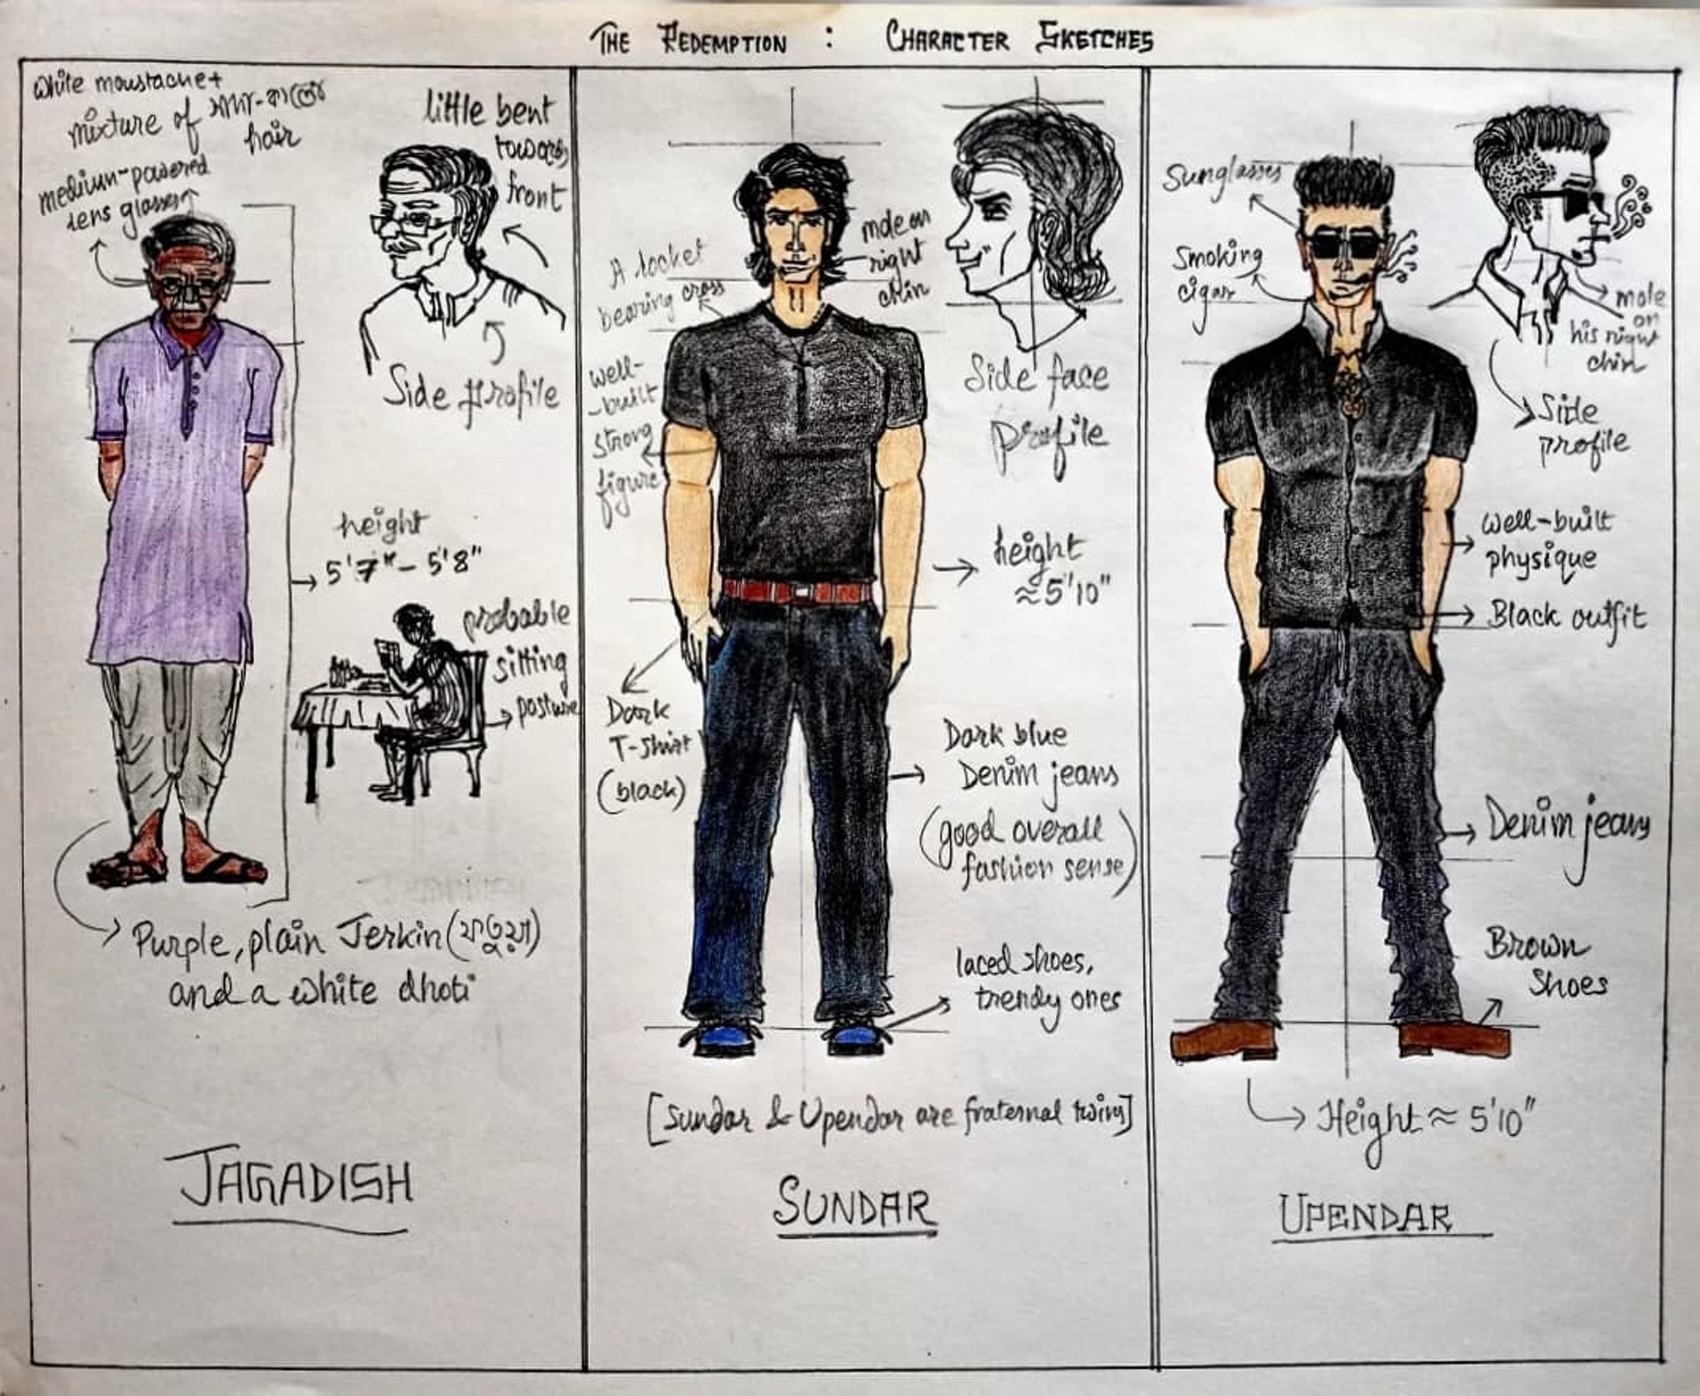 THE REDEMPTION : CHARACTER SKETCHES
white moustache +
mixture of সাদা-কালো
hair
medium-powered
lens glasses
little bent
towards
front
Side profile
height
5'7" - 5'8"
probable
sitting
posture
Purple, plain Jerkin (ফতুয়া)
and a white dhoti
JAGADISH
A locket
bearing cross
mole on
right
chin
Side face
profile
well-
-built
strong
figure
height
≈5'10"
Dark
T-shirt
(black)
Dark blue
Denim jeans
(good overall
fashion sense)
laced shoes,
trendy ones
[Sundar & Upendar are fraternal twins]
SUNDAR
Sunglasses
Smoking
cigar
mole
on
his right
chin
Side
profile
well-built
physique
Black outfit
Denim jeans
Brown
Shoes
Height ≈ 5'10"
UPENDAR